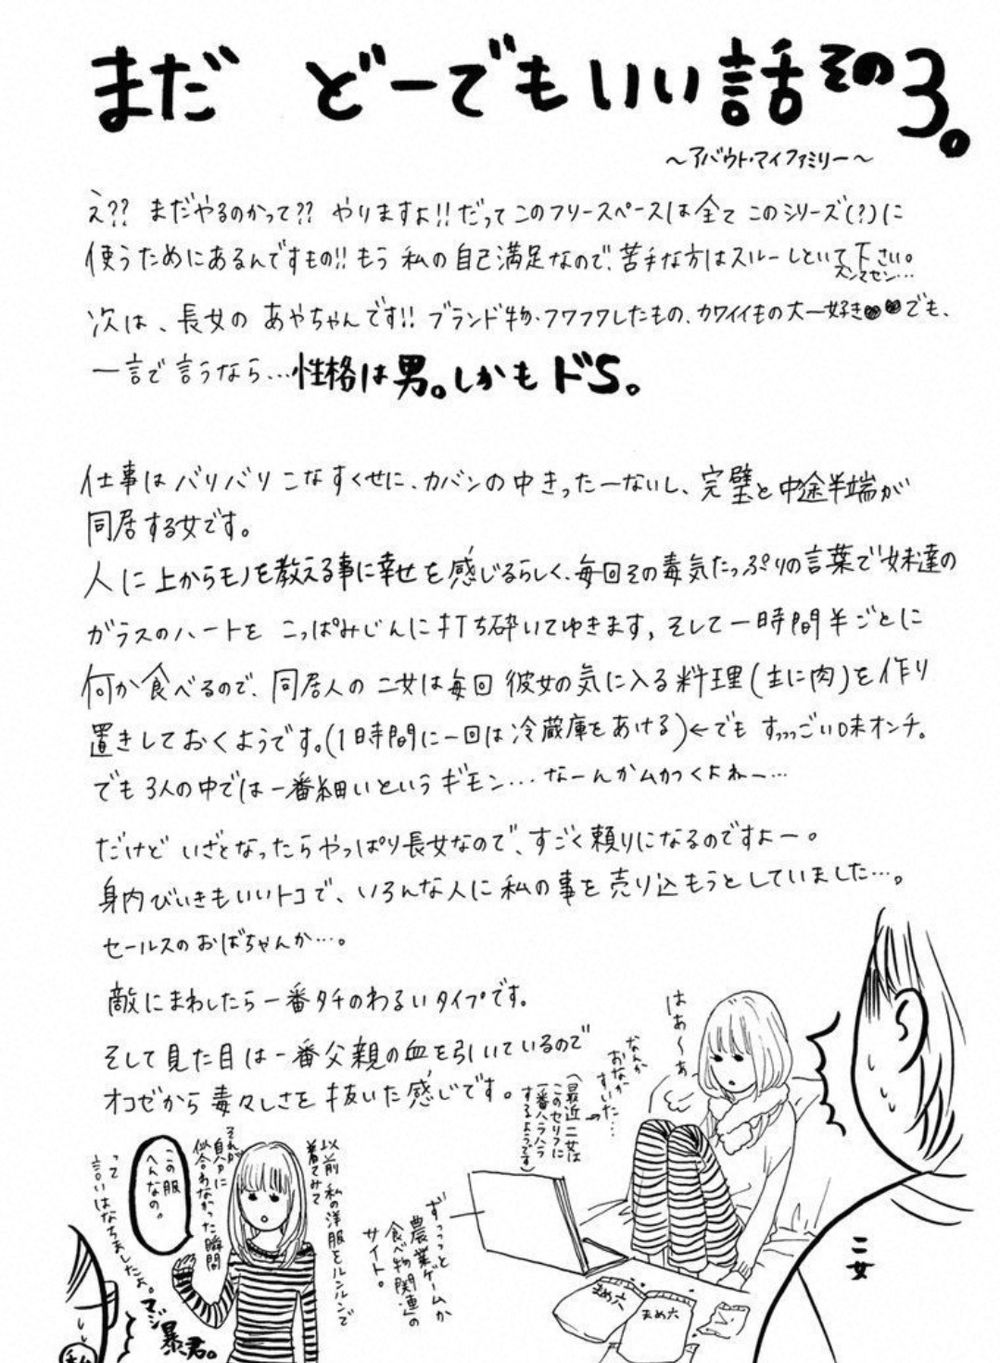 まだ どーでもいい話その3。
～アバウト・マイファミリー～
え?? まだやるのかって?? やりますよ!! だってこのフリースペースは全てこのシリーズ(?)に
使うためにあるんですもの!! もう私の自己満足なので、苦手な方はスルーしといて下さい。
スンマセン…
次は、長女の あやちゃんです!! ブランド物・フワフワしたもの、カワイイもの大一好き♥♥でも、
一言で言うなら…性格は男。しかもドS。
仕事はバリバリこなすくせに、カバンの中きったーないし、完璧と中途半端が
同居する女です。
人に上からモノを教える事に幸せを感じるらしく、毎回その毒気たっぷりの言葉で妹達の
ガラスのハートを こっぱみじんに打ち砕いてゆきます。そして一時間半ごとに
何か食べるので、同居人の二女は毎回 彼女の気に入る料理(主に肉)を作り
置きしておくようです。(1時間に一回は冷蔵庫をあける)←でも すっっっごい味オンチ。
でも3人の中では一番細いというギモン…なーんかムカつくよねー…
だけど いざとなったらやっぱり長女なので、すごく頼りになるのですよー。
身内びいきもいいトコで、いろんな人に私の事を売り込もうとしていました…。
セールスのおばちゃんか…。
敵にまわしたら一番タチのわるいタイプです。
そして見た目は一番父親の血を引いているので
オコゼから毒々しさを抜いた感じです。
はあ～ぁ
なんか
おなか
すいた…
(最近二女は
このセリフに
一番ハラハラ
するようです)
ずっっっと
農業ゲームか
食べ物関連の
サイト。
まめ六
まめ六
二女
以前 私の洋服をルンルンで
着てみて
それが
自分に
似合わなかった瞬間
この服
へんなの。
って
言いはなちましたよ。マジ
暴君。
私